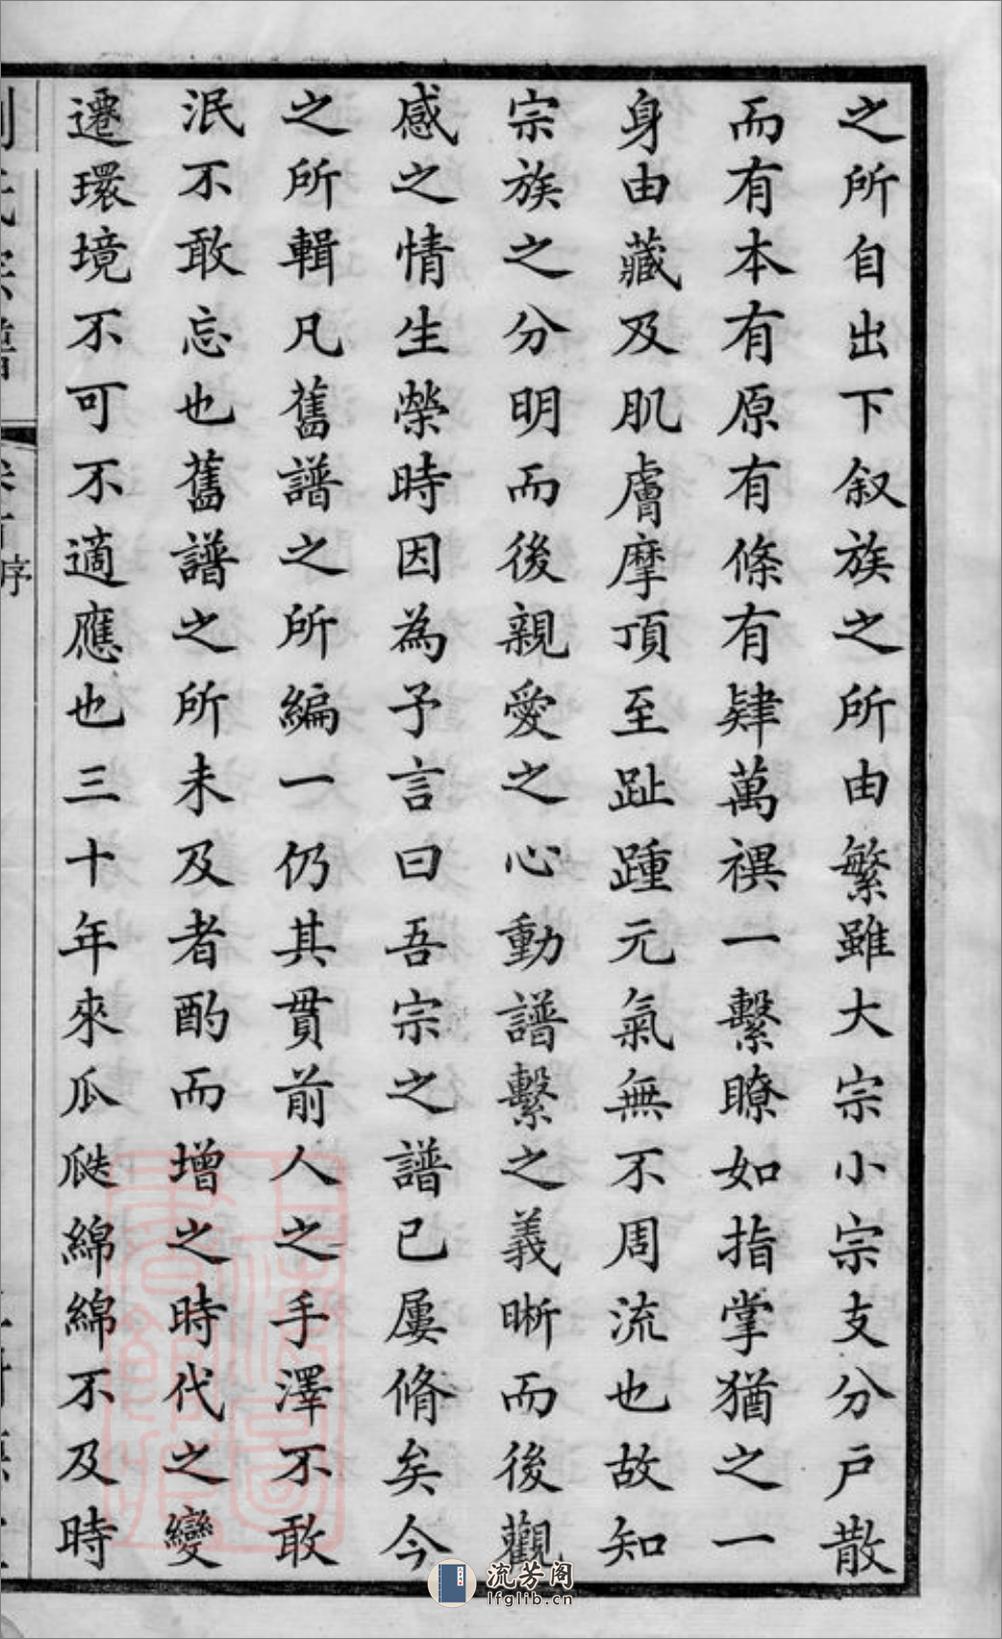 之所自出下叙族之所由繁雖大宗小宗支分戶散
而有本有原有條有肄萬禩一繫瞭如指掌猶之一
身由藏及肌膚摩頂至趾踵元氣無不周流也故知
宗族之分明而後親愛之心動譜繫之義晰而後觀
感之情生榮時因為予言曰吾宗之譜已屢脩矣今
之所輯凡舊譜之所編一仍其貫前人之手澤不敢
泯不敢忘也舊譜之所未及者酌而增之時代之變
遷環境不可不適應也三十年來瓜瓞綿綿不及時
序
流芳阁
lfglib.cn